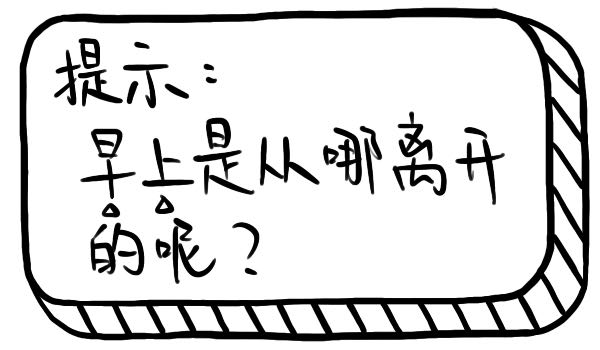 提示：
早上是从哪离开
的呢？